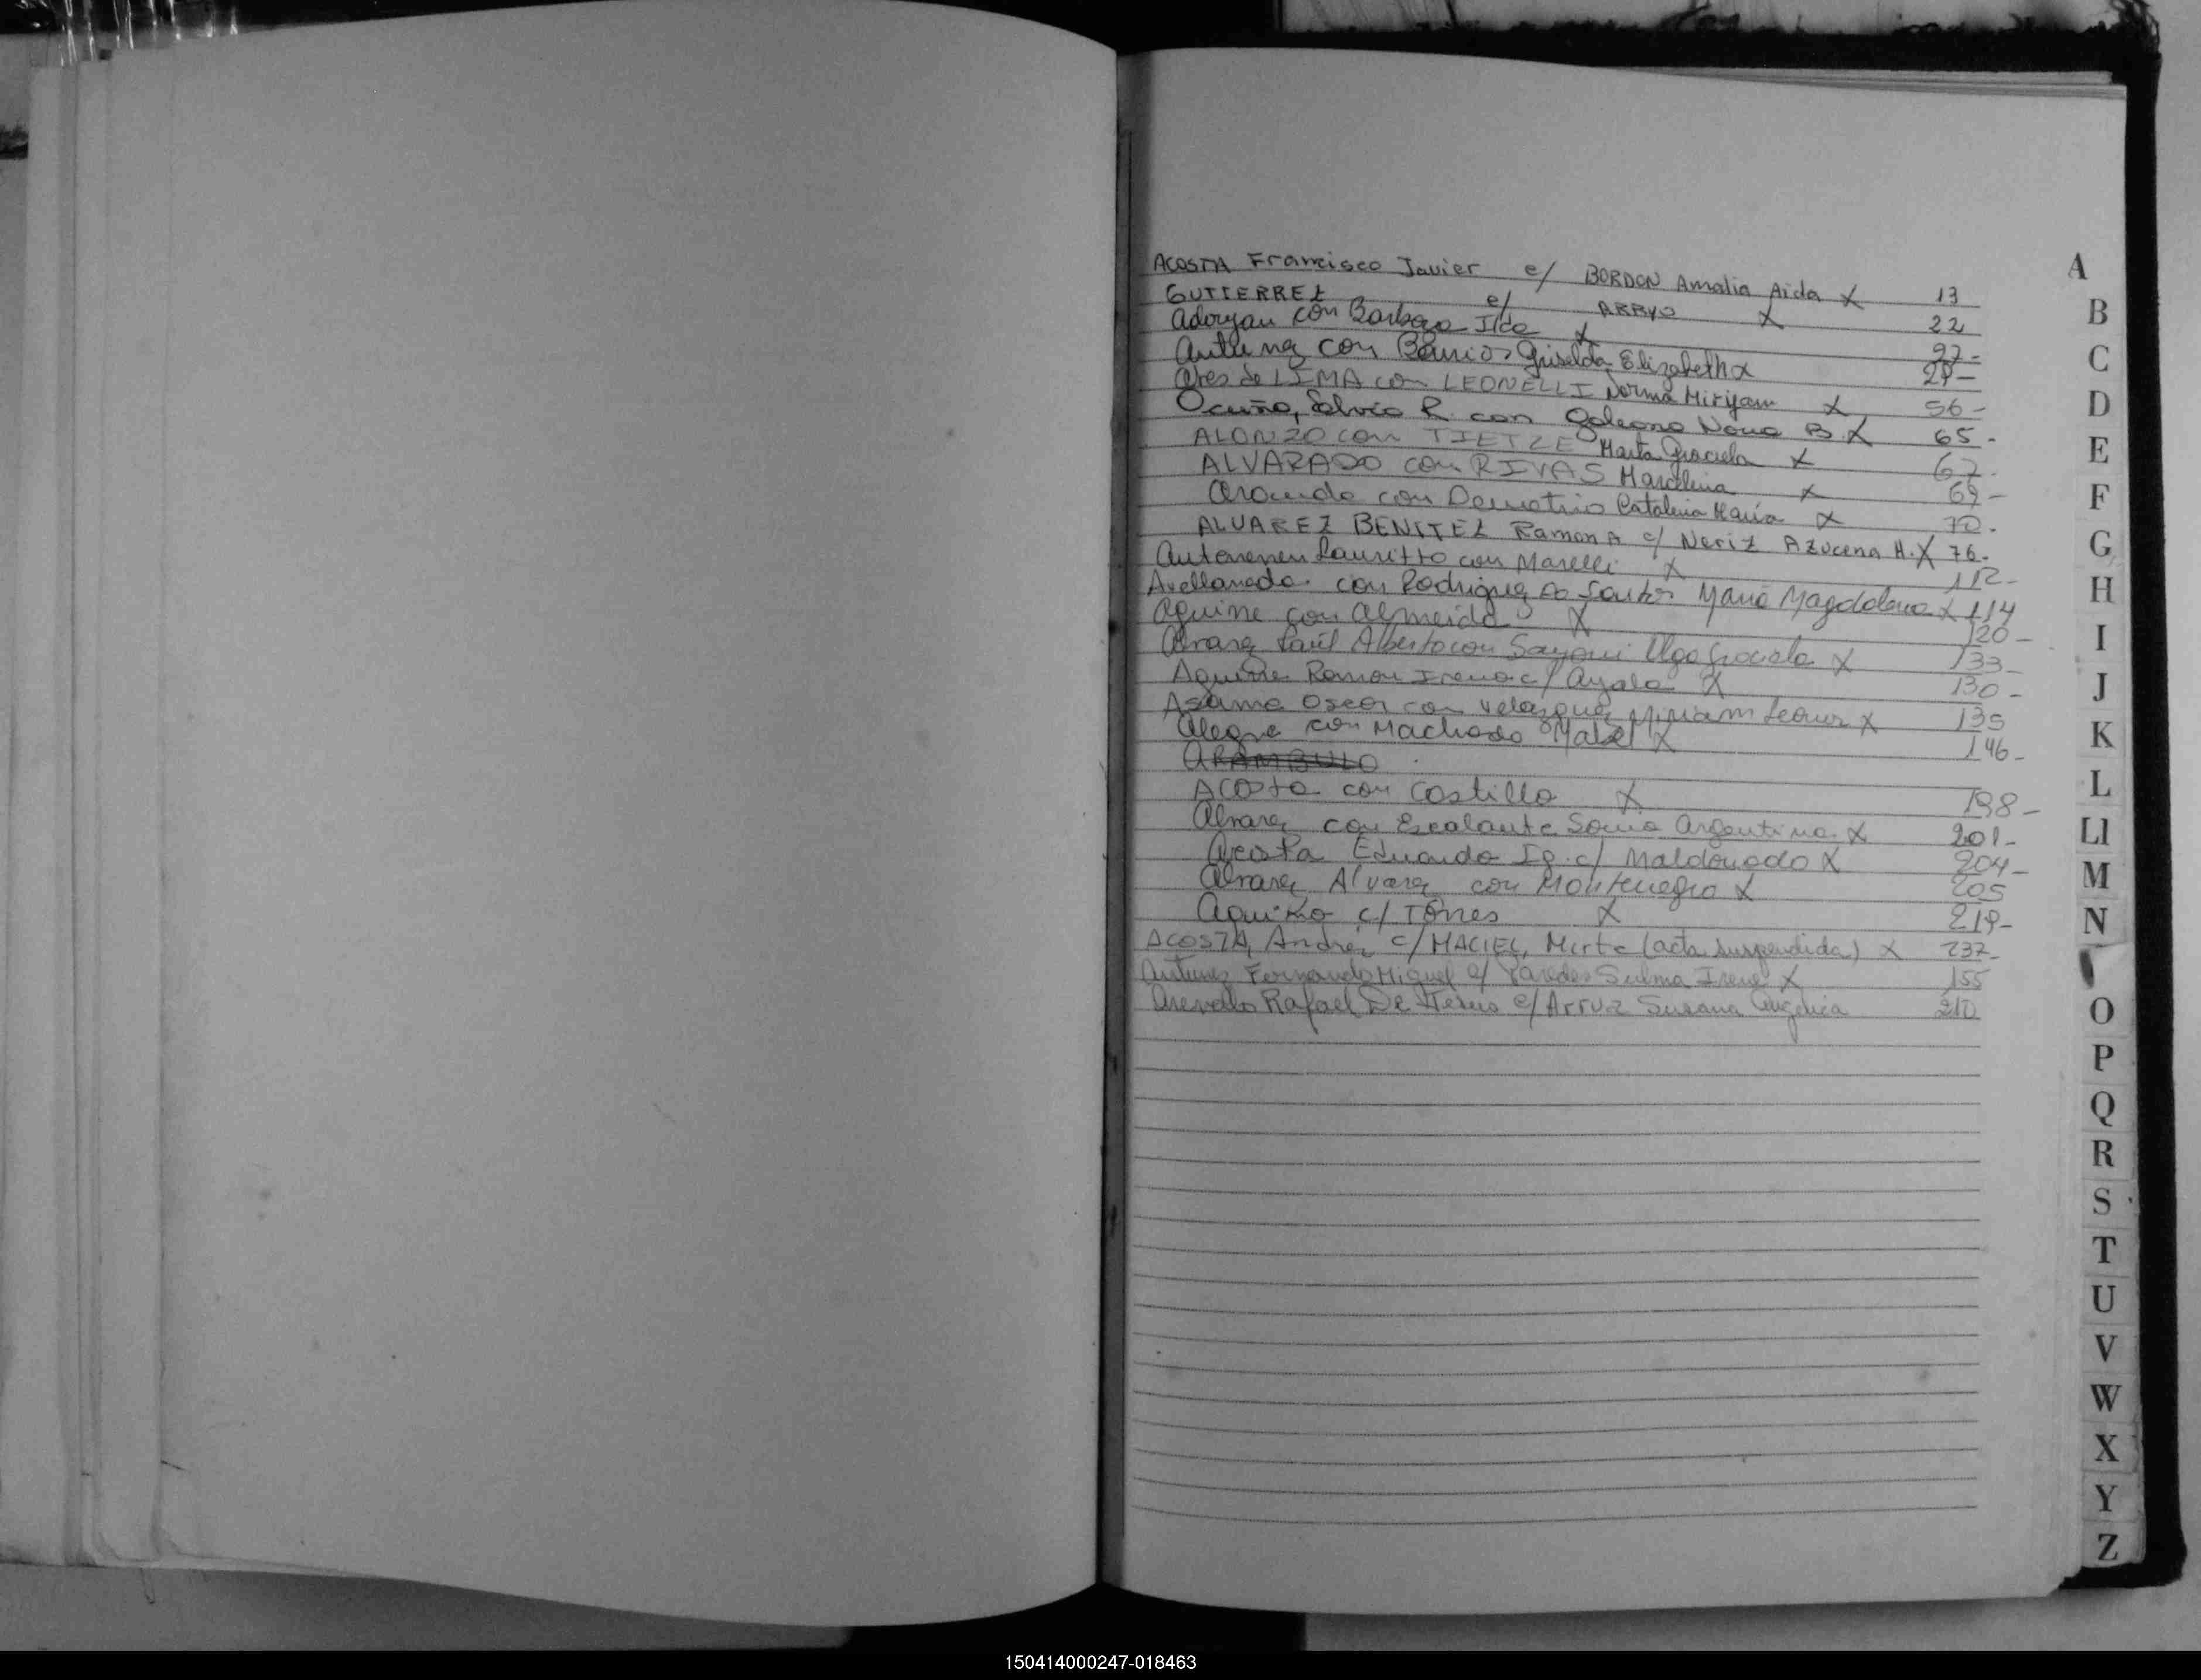 ACOSTA Francisco Javier c/ BORDON Amalia Aida X 13
GUTIERREZ c/ ARRYO X 22
Adoryan con Barbara Ilda X 27-
Antunez con Barrios Griselda Elizabeth X 29-
Ares de LIMA con LEONELLI Norma Miriyam X 56-
Ocuño, Silvio R. con Galeano Nova B. X 65-
ALONZO con TIETZE Marta Graciela X 67-
ALVARADO con RIVAS Marcelina X 69-
Aranda con Demetrio Catalina María X 70-
ALVAREZ BENITEZ Ramon A c/ Neriz Azucena H. X 76-
Lauritto con Marelli X 112-
Avellaneda con Rodriguez Do Santos María Magdalena X 114
Aguirre con Almeida X 120-
Alvarez Raúl Alberto con Olga Graciela X 133-
Aguirre Ramon Ireneo c/ Ayala X 130-
Oscar con Velazquez Miriam Leonor X 135
Alegre con Machado Mabel X 146-
ARAMBULO
Acosta con Castillo X 198-
Alvarez con Escalante Sonia Argentina X 201-
Acosta Eduardo Ig. c/ Maldonado X 204-
Alvarez Alvarez con Montenegro X 205
Aquino c/ Torres X 219-
ACOSTA, Andrés c/ MACIEL, Mirta (acta suspendida) X 237-
Antunez Fernando Miguel c/ Paredes Sulma Irene X 155
Arevalo Rafael De Jesus c/ Arrua Susana Angelica 210
A
B
C
D
E
F
G
H
I
J
K
L
Ll
M
N
O
P
Q
R
S
T
U
V
W
X
Y
Z
150414000247-018463